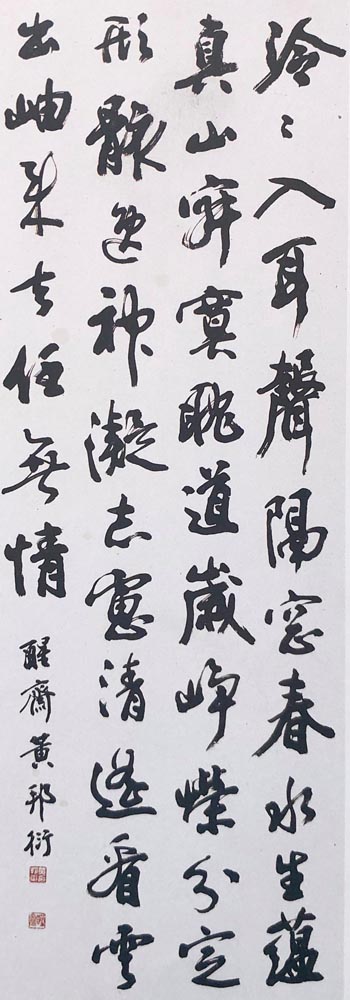 泠〻入耳聲隔窗春水生蘊
真山寂寞耽道歲崢嶸分定
形骸逸神凝志慮清遙看雲
出岫來去任無情
醒齋黃邦衍